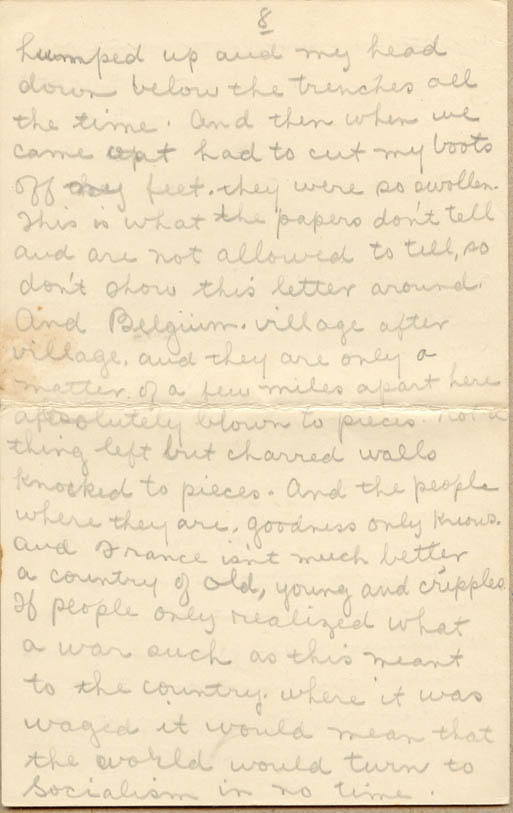 8
humped up and my head
down below the trenches all
the time. And then when we
came out had to cut my boots
off my feet. they were so swollen.
This is what the papers don't tell
and are not allowed to tell, so
don't show this letter around.
And Belgium. village after
village, and they are only a
matter of a few miles apart here
absolutely blown to pieces. not a
thing left but charred walls
knocked to pieces. And the people
where they are, goodness only knows.
And France isn't much better
a country of old, young and cripples.
If people only realized what
a war such as this meant
to the country. where it was
waged it would mean that
the world would turn to
Socialism in no time.